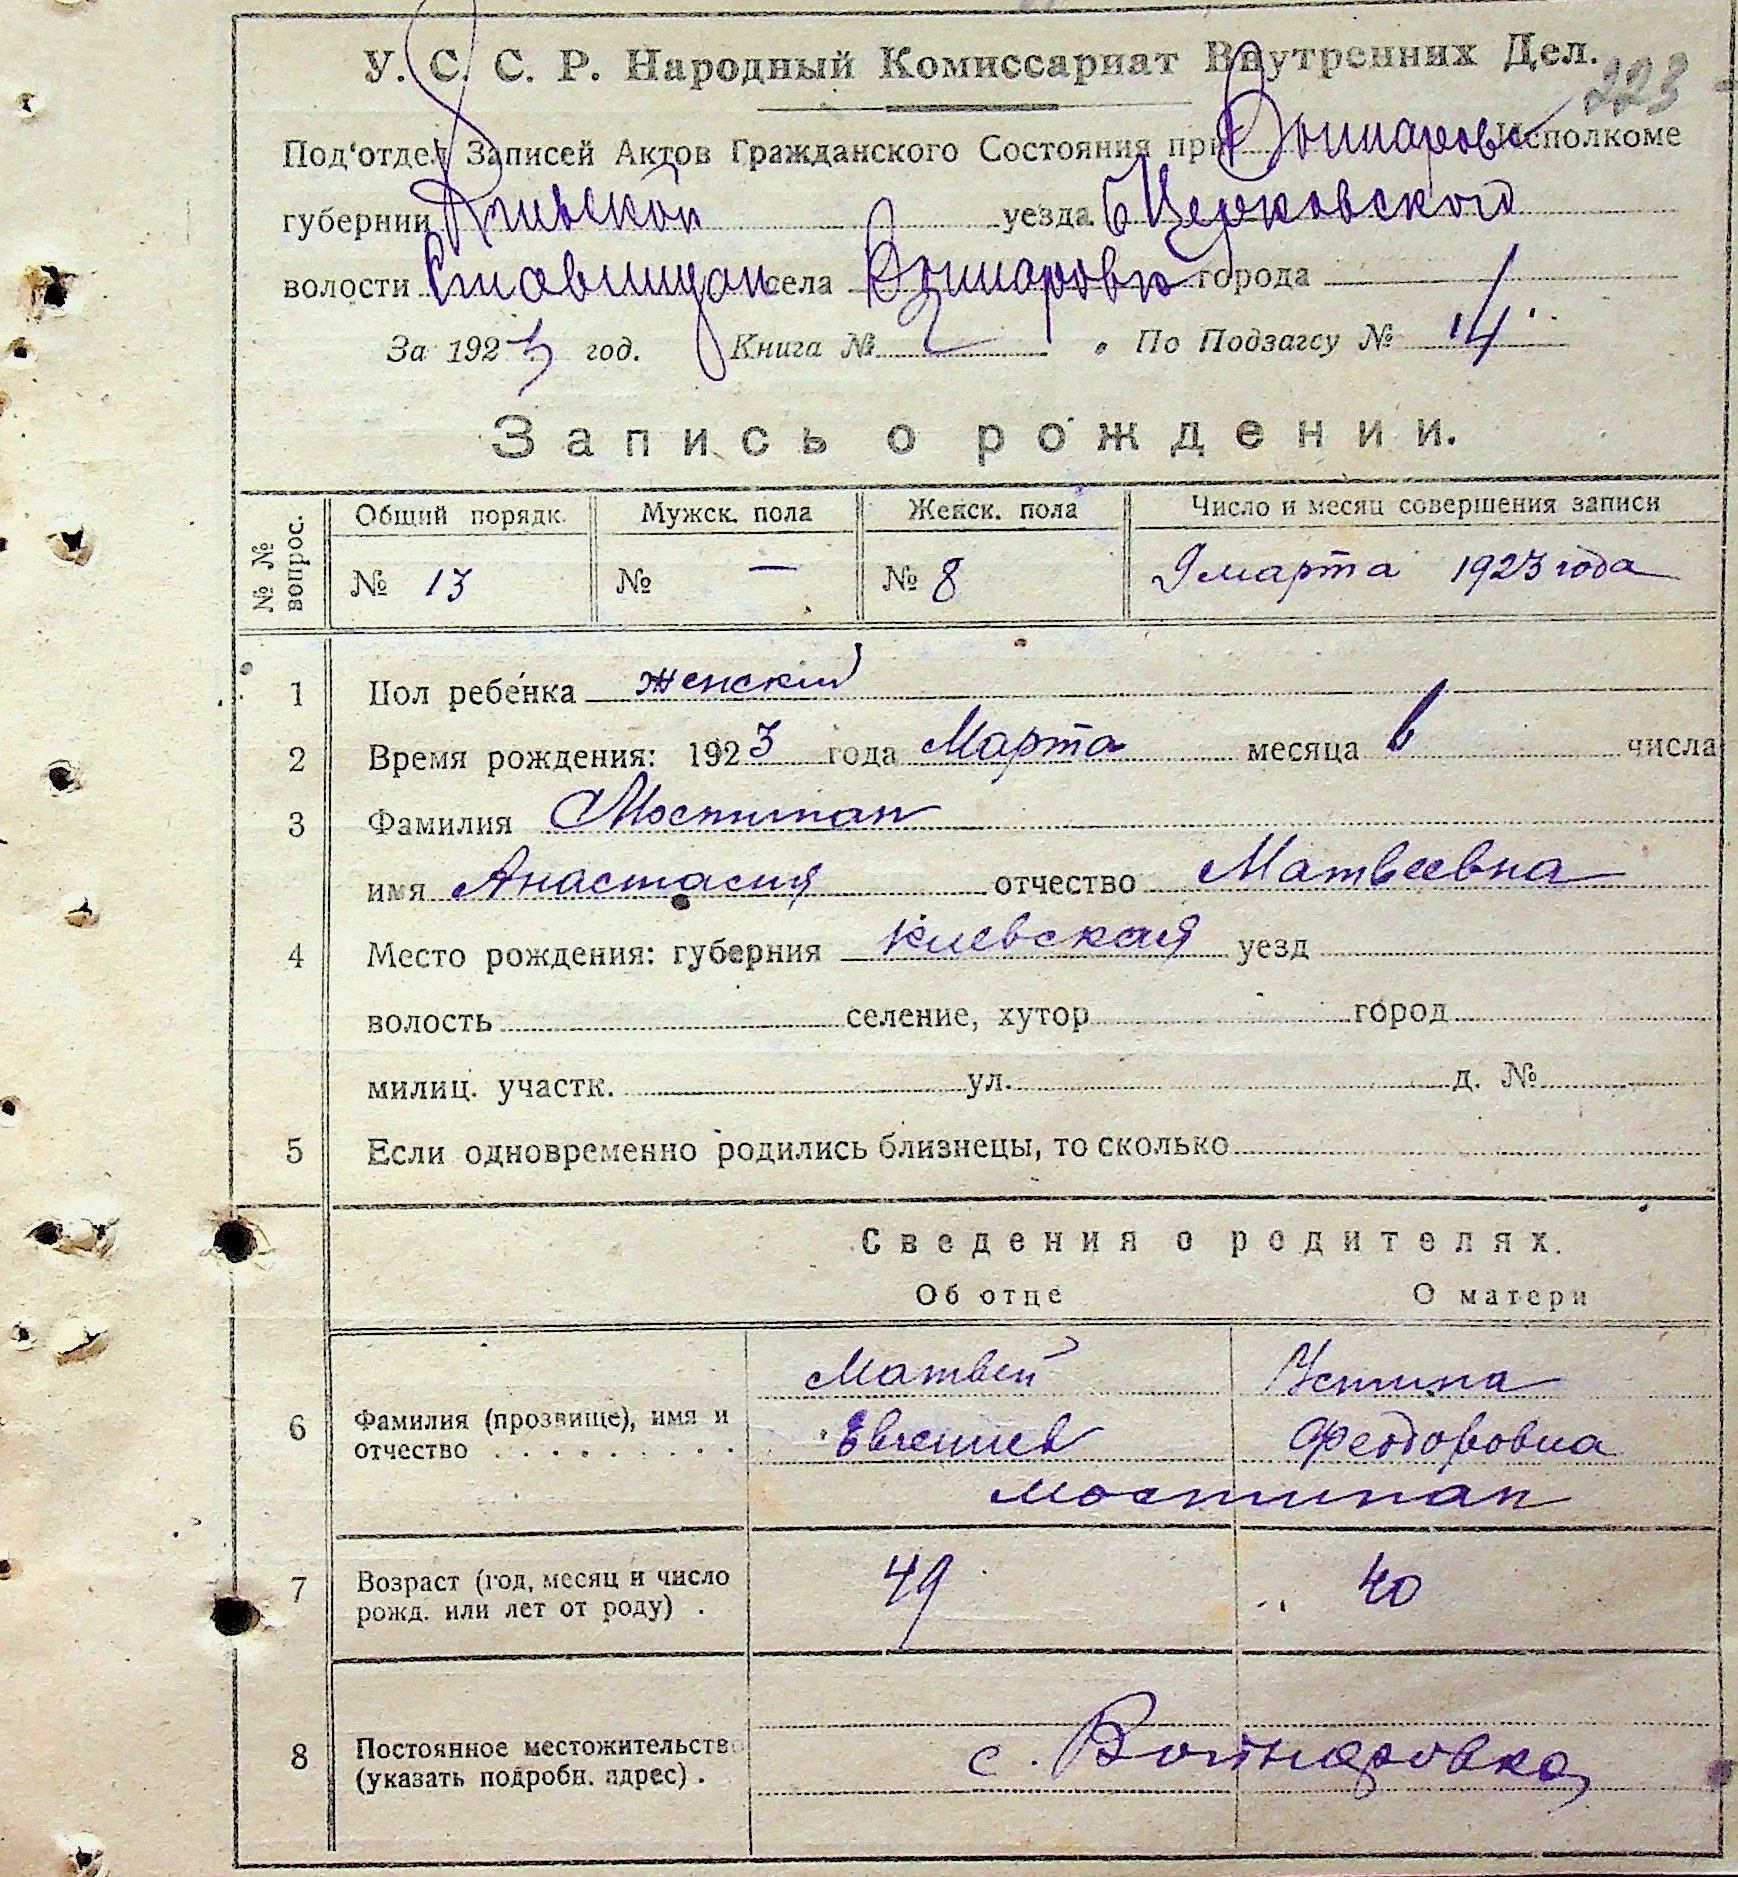 223
У. С. С. Р. Народный Комиссариат Внутренних Дел.
Под‘отдел Записей Актов Гражданского Состояния при Исполкоме
губернии Киевской уезда БЦерковского
волости села города
За 1923 год. Книга № 2 По Подзагсу № 14
Запись о рождении.
№ № вопрос. Общий порядк. Мужск. пола Женск. пола Число и месяц совершения записи
№ 13 № — № 8 9 марта 1923 года
1 Пол ребенка женский
2 Время рождения: 1923 года Марта месяца 6 числа
3 Фамилия Мостипан
имя Анастасия отчество Матвеевна
4 Место рождения: губерния Киевская уезд
волость селение, хутор город
милиц. участк. ул. д. №
5 Если одновременно родились близнецы, то сколько
Сведения о родителях.
Об отце О матери
Матвей Устина
6 Фамилия (прозвище), имя и отчество Феодоровна
Мостипан
7 Возраст (год, месяц и число рожд. или лет от роду) . 49 40
8 Постоянное местожительство (указать подробн. адрес) . с. Войнаровка